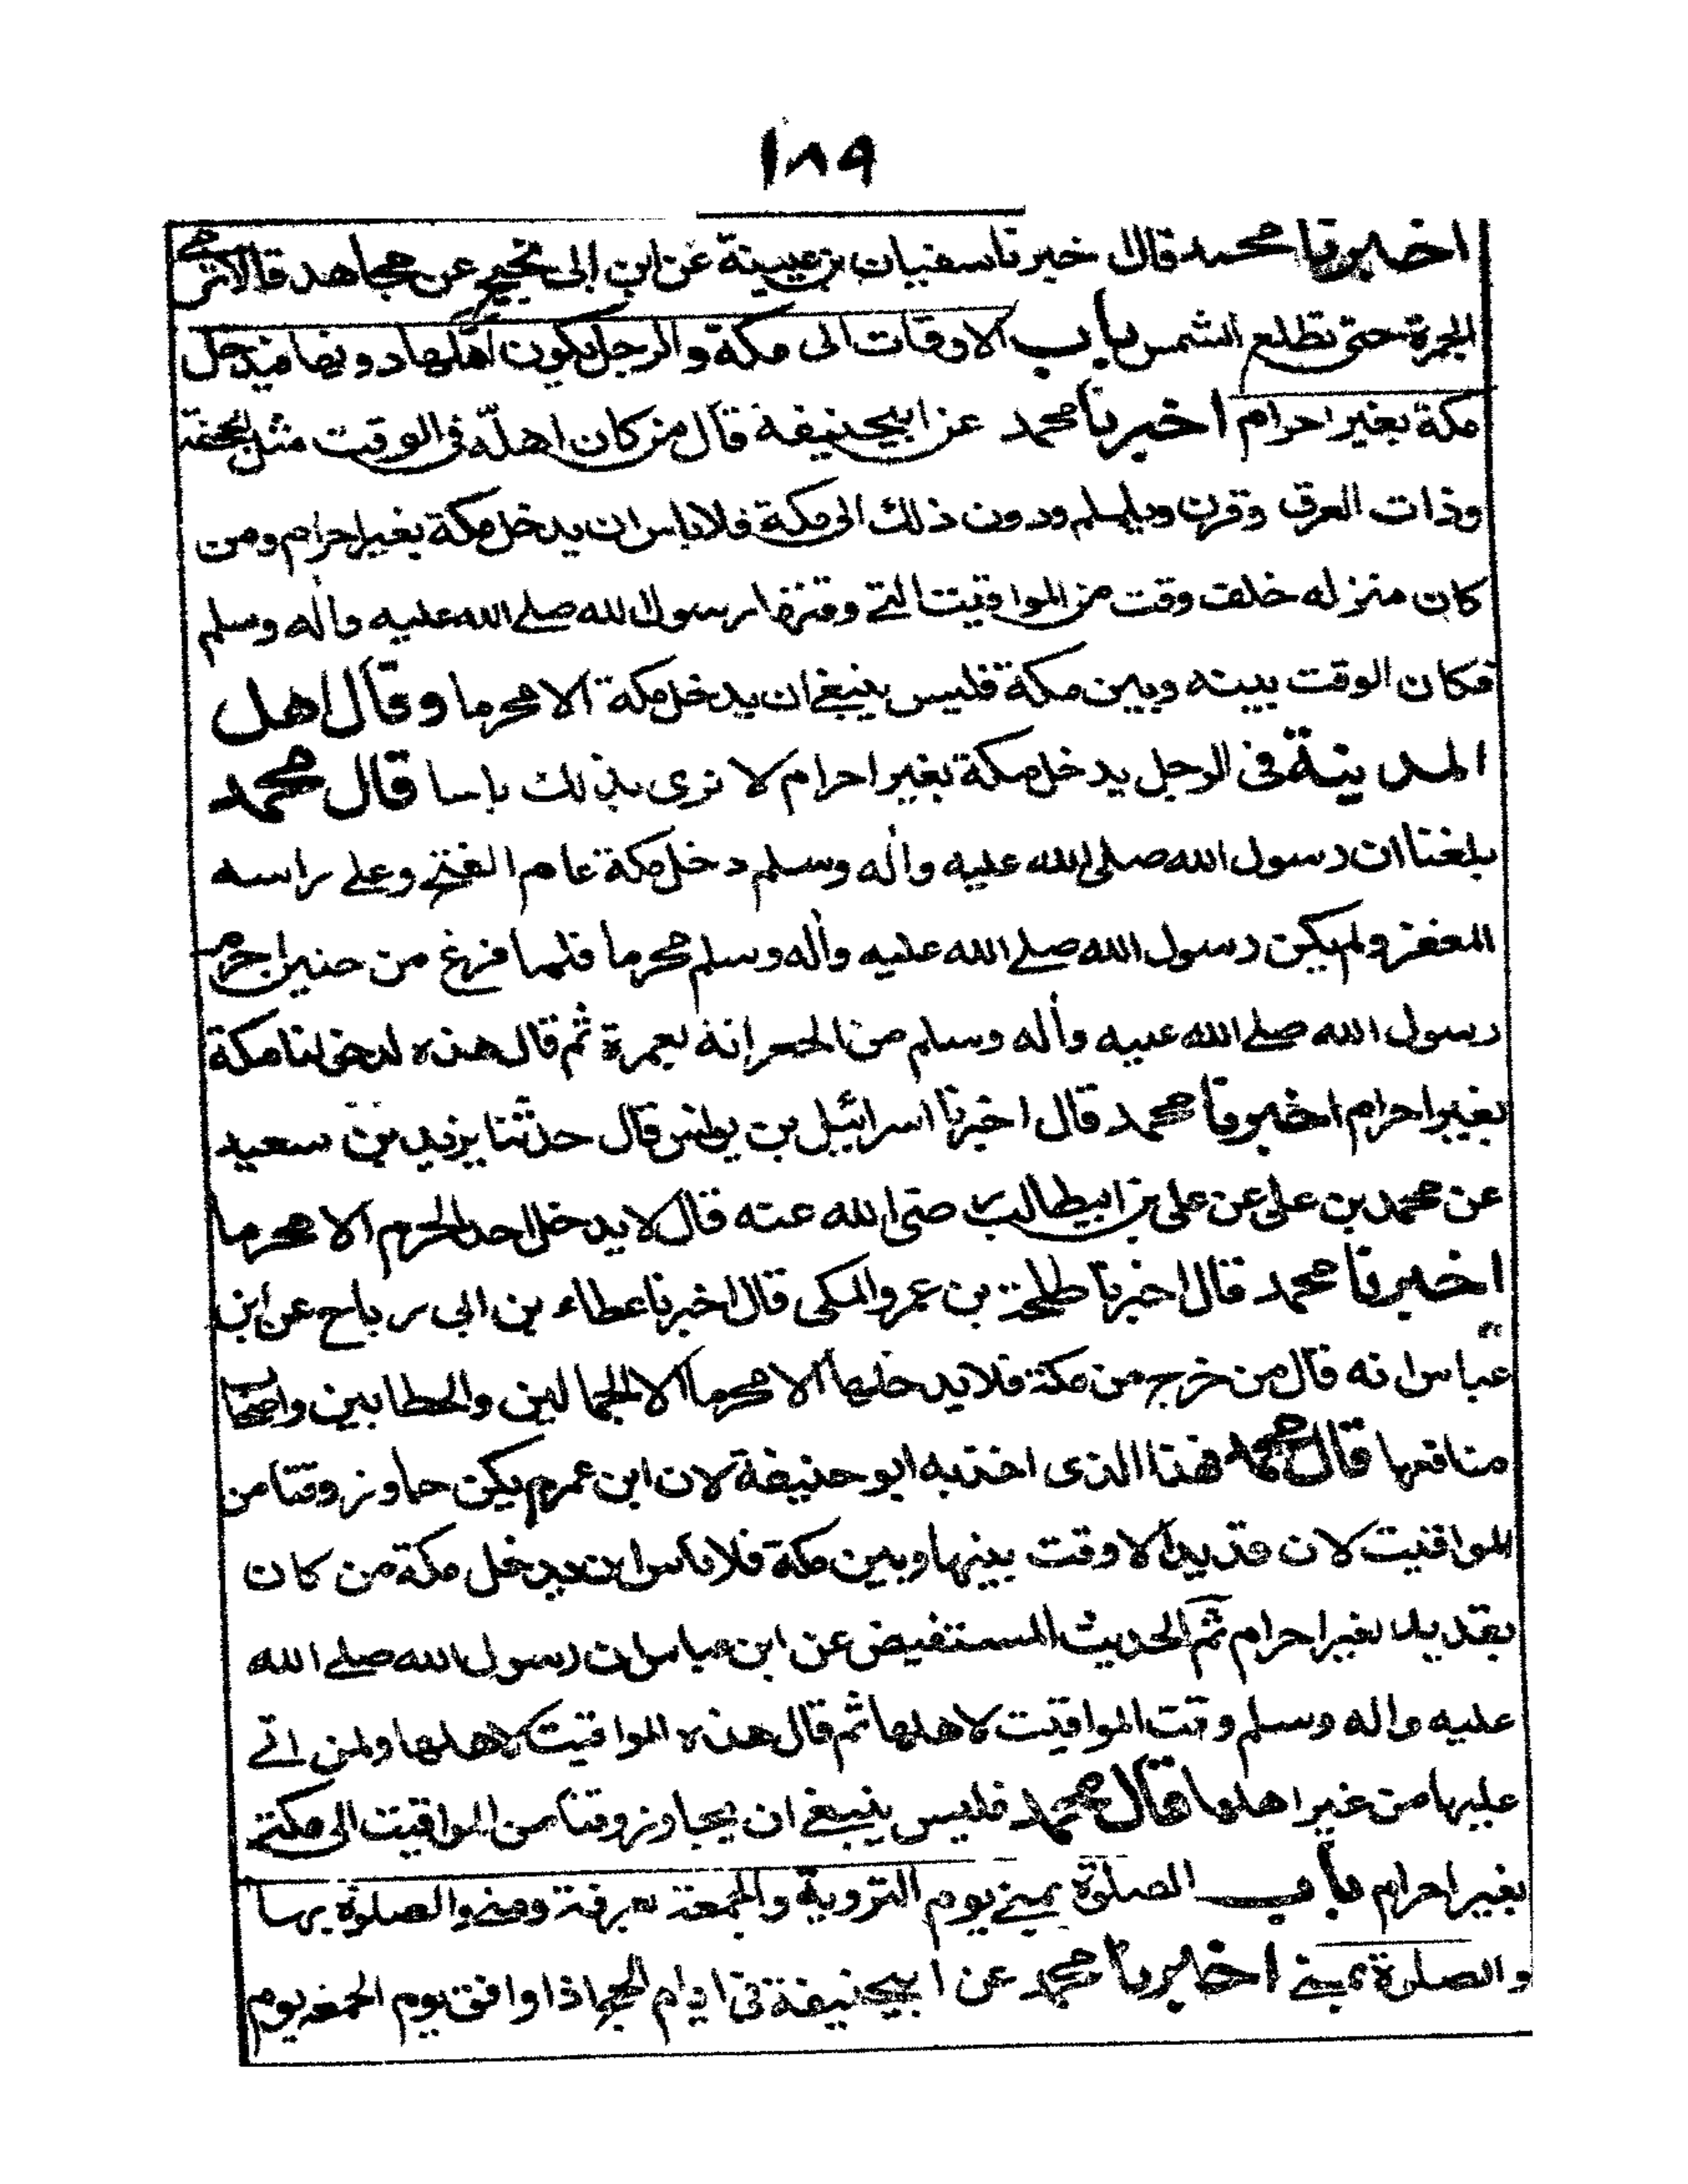 ١٨٩
اخبرنا محمد قال خبرنا سفيان بن عيينة عن ابن ابى نجيح عن مجاهد قال لا ترمى
الجمرة حتى تطلع الشمس باب الاوقات الى مكة والرجل يكون اهلها دونها فيدخل
مكة بغير احرام اخبرنا محمد عن ابيحنيفة قال من كان اهله فى الوقت مثل الجحفة
وذات العرق وقرن ويلملم ودون ذلك الى مكة فلا باس ان يدخل مكة بغير احرام ومن
كان منزله خلف وقت من المواقيت التے وقتها رسول الله صلے الله عليه واٰله وسلم
فكان الوقت بينه وبين مكة فليس ينبغے ان يدخل مكة الا محرما وقال اهل
المدينة فى الرجل يدخل مكة بغير احرام لا نرى بذلك باسا قال محمد
بلغنا ان رسول الله صلى الله عليه واٰله وسلم دخل مكة عام الفتح وعلے راسه
المغفر ولم يكن رسول الله صلے الله عليه واٰله وسلم محرما فلما فرغ من حنين احرم
رسول الله صلے الله عليه واٰله وسلم من الجعرانة بعمرة ثم قال هذه لدخولنا مكة
بغير احرام اخبرنا محمد قال اخبرنا اسرائيل بن يونس قال حدثنا يزيد بن سعيد
عن محمد بن على عن على بن ابيطالب رضى الله عنه قال لا يدخل احد الحرم الا محرما
اخبرنا محمد قال اخبرنا طلحة بن عمرو المكى قال اخبرنا عطاء بن ابى رباح عن ابن
عباس انه قال من خرج من مكة فلا يدخلها الا محرما الا الجمالين والحطابين واصحاب
منافعها قال محمد فهذا الذى اخذ به ابو حنيفة لان ابن عمر لم يكن جاوز وقتا من
المواقيت لان قديدا لا وقت بينها وبين مكة فلا باس ان يدخل مكة من كان
بقديد بغير احرام ثم الحديث المستفيض عن ابن عباس ان رسول الله صلے الله
عليه واله وسلم وقت المواقيت لاهلها ثم قال هذه المواقيت لاهلها ولمن اتے
عليها من غير اهلها قال محمد فليس ينبغے ان يجاوز وقتا من المواقيت الى مكة
بغير احرام باب الصلوة بمنے يوم التروية والجمعة بعرفة ومنے والصلوة بها
والصلوة بمنے اخبرنا محمد عن ابيحنيفة فى ايام الحج اذا وافق يوم الجمعة يوم